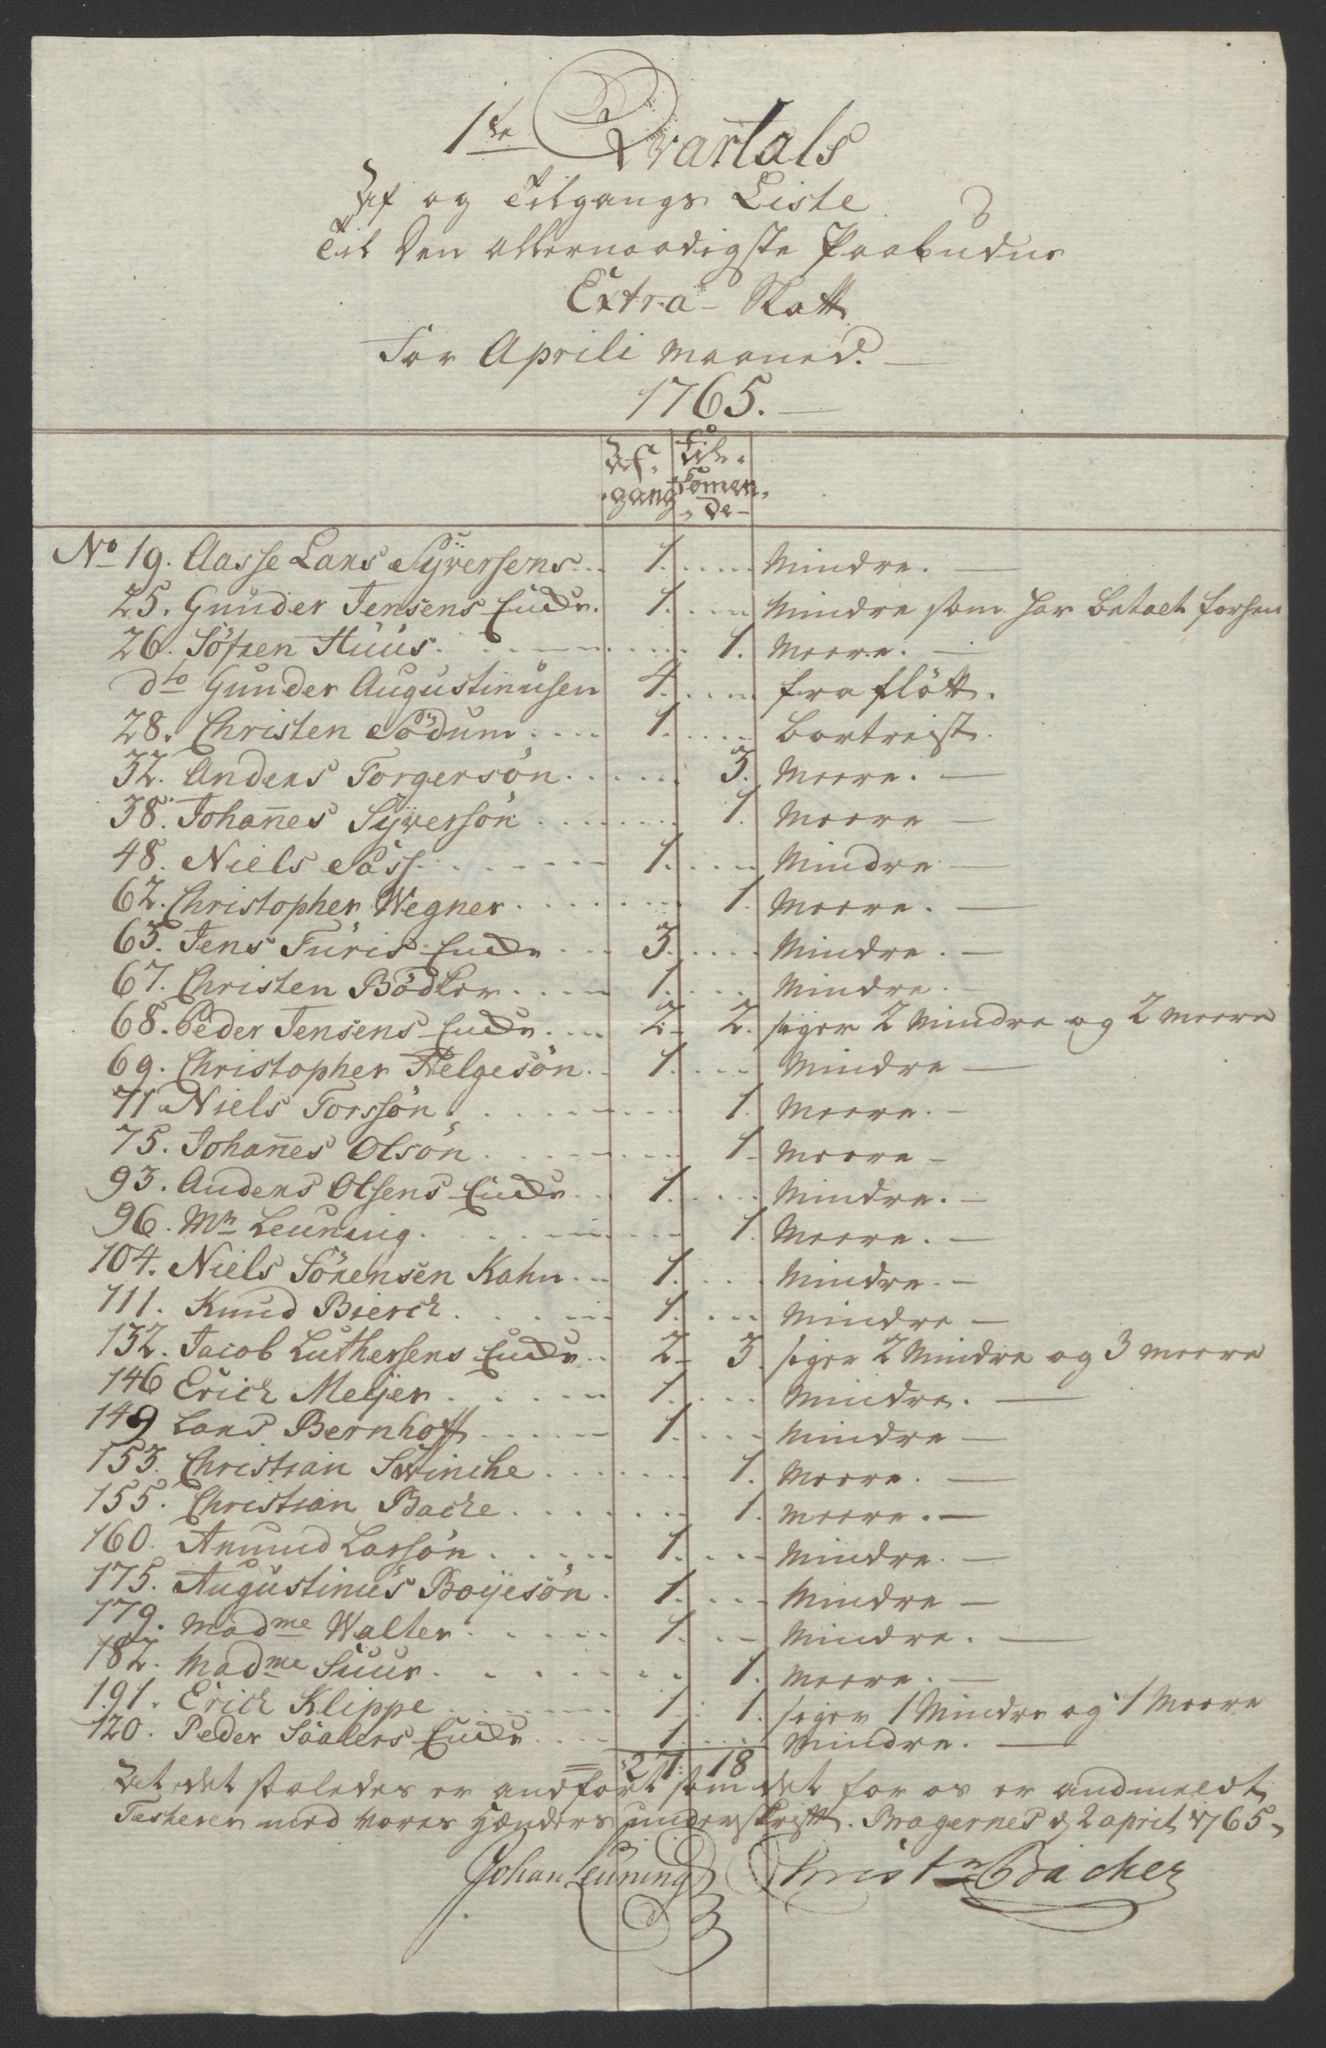 1ste Qvartals
Af og Tilgangs Liste
Til Den allernaadigste Paabudne
Extra-Skatt
For Aprili Maaned.
1765.
Af-
gang
Til-
komen-
de-
No 19. Aasse Lars Syversens 1. Mindre.
25. Gunder Jensens Encke. 1. Mindre som har betalt forhen
26. Söfren Huus. 1. Meere.
dto Gunder Augustinusen 4. fra flött.
28. Christen Södum 1. bortreist.
32. Anders Torgersön 3. Meere.
38. Johan̄es Syversön 1. Meere
48. Niels Sass. 1. Mindre
62. Christopher Wegner 1. Meere.
65. Jens Furis Encke 3. Mindre.
67. Christen Bödker 1. Mindre.
68. Peder Jensens Encke 2. 2. siger 2 Mindre og 2 Meere
69. Christopher Helgesön 1. Mindre
71 Niels Torssön. 1. Meere.
75. Johan̄es Olsön 1. Meere
93. Anders Olsens Encke 1. Mindre.
96. Mr Leuning. 1. Meere.
104. Niels Sörensen Kahn 1. Mindre.
111. Knud Bierch 1. Mindre
132. Jacob Luthersens Encke 2. 3. siger 2 Mindre og 3 Meere
146 Erich Meyer 1. Mindre.
149 Lars Bernhoft 1. Mindre
153. Christian Swinche 1. Meere.
155. Christian Bache 1. Meere.
160. Amund Larsön 1. Mindre.
175. Augustinus Boyesön 1. Mindre
179. Madme Walter 1. Mindre.
182. Madme Suur 1. Meere.
191. Erich Klippe 1. 1. siger 1 Mindre og 1 Meere
120. Peder Saalers Encke 1. Mindre.
27. 18
At det saaledes er andfört som det for os er andmeldt
Testerer med vores Hænders underskrift. Bragernes d 2 april 1765.
Johan Leuning Christn Bacher